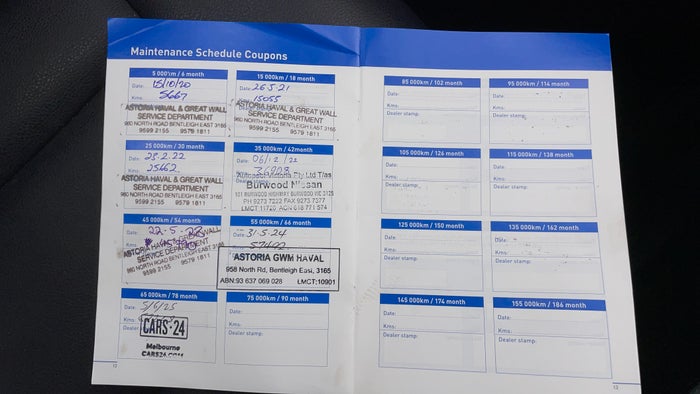 Maintenance Schedule Coupons
5 000km / 6 month
Date: 15/10/20
Kms: 5667
ASTORIA HAVAL & GREAT WALL
SERVICE DEPARTMENT
960 NORTH ROAD BENTLEIGH EAST 3165
9599 2155 9579 1811
15 000km / 18 month
Date: 26.5.21
15055
ASTORIA HAVAL & GREAT WALL
SERVICE DEPARTMENT
960 NORTH ROAD BENTLEIGH EAST 3165
9599 2155 9579 1811
25 000km / 30 month
Date: 23.2.22
25462
ASTORIA HAVAL & GREAT WALL
SERVICE DEPARTMENT
960 NORTH ROAD BENTLEIGH EAST 3165
9599 2155 9579 1811
35 000km / 42month
Date: 06/12/22
Autopact Victoria Pty Ltd T/as
Burwood Nissan
101 BURWOOD HIGHWAY BURWOOD VIC 3125
PH 9273 7222 FAX 9273 7377
LMCT 11720 ACN 618 771 574
45 000km / 54 month
Date: 22.5.23
ASTORIA HAVAL & GREAT WALL
SERVICE DEPARTMENT
960 NORTH ROAD BENTLEIGH EAST 3165
9599 2155 9579 1811
55 000km / 66 month
Date: 31.5.24
Kms: 57402
ASTORIA GWM HAVAL
958 North Rd, Bentleigh East, 3165
ABN:93 637 069 028 LMCT:10901
65 000km / 78 month
Date: 5/6/25
Kms:
Dealer
CARS·24
Melbourne
CARS24.COM
75 000km / 90 month
Date:
Kms:
Dealer stamp:
12
85 000km / 102 month
Date:
Kms:
Dealer stamp:
95 000km / 114 month
Date:
Kms:
Dealer stamp:
105 000km / 126 month
Date:
Kms:
Dealer stamp:
115 000km / 138 month
Date:
Kms:
Dealer stamp:
125 000km / 150 month
Date:
Kms:
Dealer stamp:
135 000km / 162 month
Date:
Kms:
Dealer stamp:
145 000km / 174 month
Date:
Kms:
Dealer stamp:
155 000km / 184 month
Date:
Kms:
Dealer stamp:
13